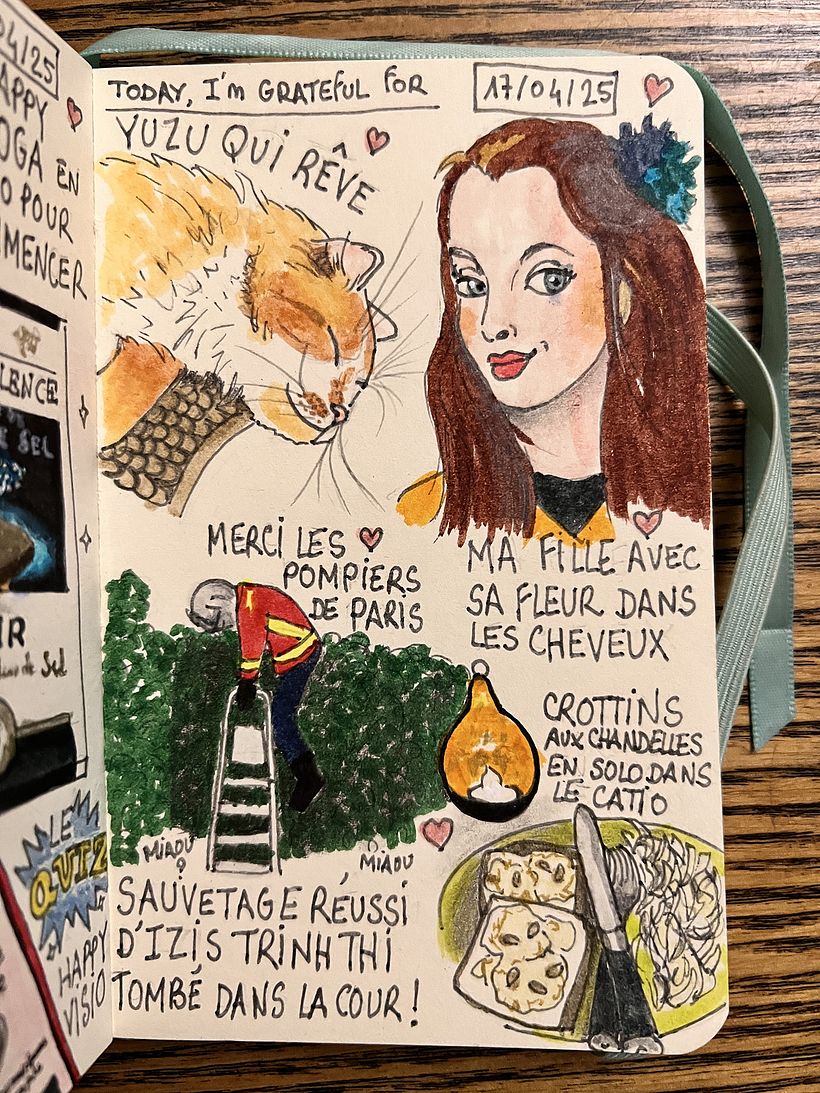 04/25
HAPPY
YOGA EN
POUR
LENCE
SEL
IR
LE
QUIZ
HAPPY
VISIO
TODAY, I'M GRATEFUL FOR
17/04/25
YUZU QUI RÊVE
MA FILLE AVEC
SA FLEUR DANS
LES CHEVEUX
MERCI LES
POMPIERS
DE PARIS
MIAOU
?
MIAOU
SAUVETAGE RÉUSSI
D'IZIS TRINH THI
TOMBÉ DANS LA COUR !
CROTTINS
AUX CHANDELLES
EN SOLO DANS
LE CATIO